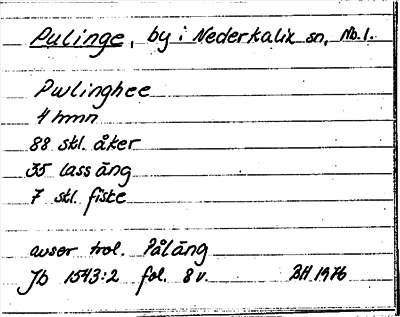 Pulinge, by i Nederkalix sn, Nb.l.
Pwlinghee
4 hmn
88 skl. åker
35 lass äng
7 skl. fiske
avser trol. Påläng
Jb 1543:2 fol. 8 v. BH 1976